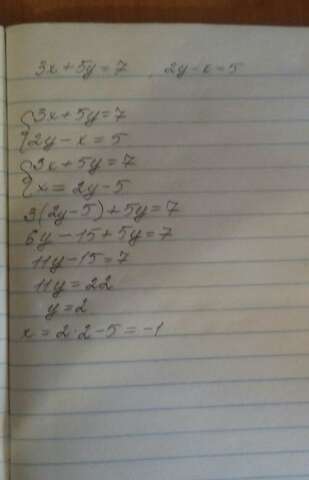 3x + 5y = 7 , 2y - x = 5
{3x + 5y = 7
{2y - x = 5
{3x + 5y = 7
{x = 2y - 5
3(2y - 5) + 5y = 7
6y - 15 + 5y = 7
11y - 15 = 7
11y = 22
y = 2
x = 2 · 2 - 5 = -1